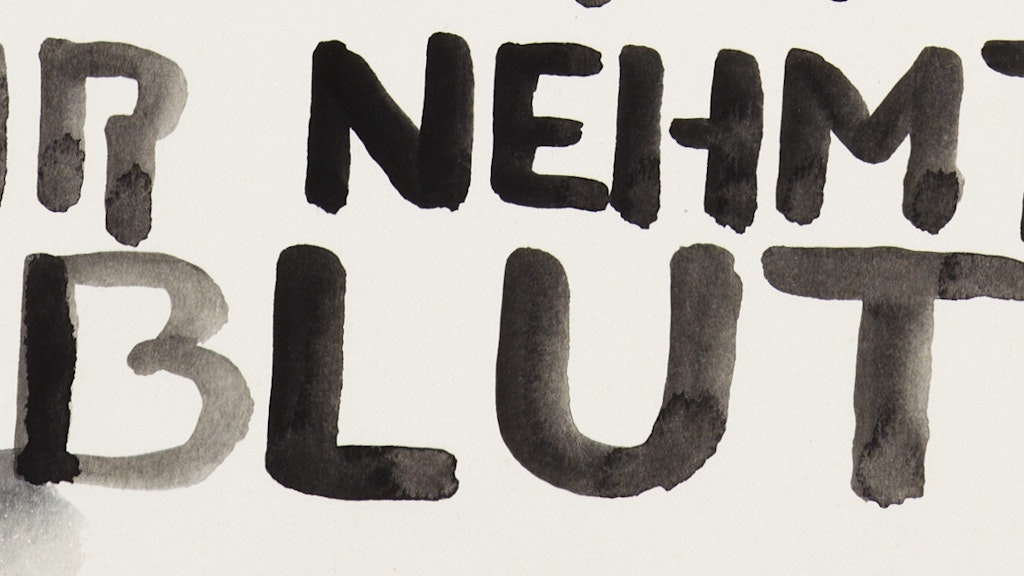 R NEHMT
BLUT